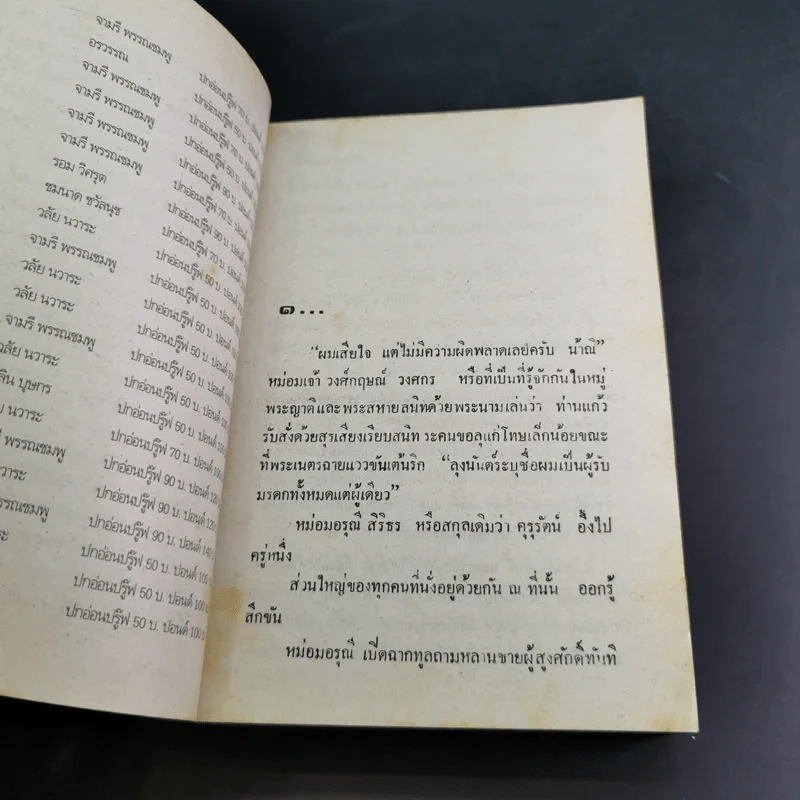 จามรี พรรณชมพู
อรวรรณ
จามรี พรรณชมพู
จามรี พรรณชมพู
จามรี พรรณชมพู
จามรี พรรณชมพู
รอม วิศรุต
ชมนาด ชวัลนุช
วลัย นวาระ
จามรี พรรณชมพู
วลัย นวาระ
วลัย นวาระ
จามรี พรรณชมพู
วลัย นวาระ
ลิน บุษกร
ย นวาระ
รี พรรณชมพู
นวาระ
พรรณชมพู
าระ
ปกอ่อนปรู๊ฟ 70 บ. ปอนด์
ปกอ่อนปรู๊ฟ 50 บ. ปอนด์
ปกอ่อนปรู๊ฟ 70 บ. ปอนด์
ปกอ่อนปรู๊ฟ 50 บ. ปอนด์
ปกอ่อนปรู๊ฟ 90 บ. ปอนด์
ปกอ่อนปรู๊ฟ 70 บ. ปอนด์
ปกอ่อนปรู๊ฟ 70 บ. ปอนด์
ปกอ่อนปรู๊ฟ 50 บ. ปอนด์
ปกอ่อนปรู๊ฟ 50 บ. ปอนด์
ปกอ่อนปรู๊ฟ 50 บ. ปอนด์
ปกอ่อนปรู๊ฟ 50 บ. ปอนด์
ปกอ่อนปรู๊ฟ 50 บ. ปอนด์
ปกอ่อนปรู๊ฟ 50 บ. ปอนด์ 100
ปกอ่อนปรู๊ฟ 70 บ. ปอนด์
ปกอ่อนปรู๊ฟ 90 บ. ปอนด์
ปกอ่อนปรู๊ฟ 90 บ. ปอนด์
ปกอ่อนปรู๊ฟ 90 บ. ปอนด์ 140
ปกอ่อนปรู๊ฟ 50 บ. ปอนด์ 100
ปกอ่อนปรู๊ฟ 50 บ. ปอนด์ 100
ปกอ่อนปรู๊ฟ 50 บ. ปอนด์ 100 บ
๑...
"ผมเสียใจ แต่ไม่มีความผิดพลาดเลยครับ น้าณี"
หม่อมเจ้า วงศ์กฤษณ์ วงศกร หรือที่เป็นที่รู้จักกันในหมู่
พระญาติและพระสหายสนิทด้วยพระนามเล่นว่า ท่านแก้ว
รับสั่งด้วยสุรเสียงเรียบสนิท ระคนขอลุแก่โทษเล็กน้อยขณะ
ที่พระเนตรฉายแววขันเต้นริก "ลุงนันต์ระบุชื่อผมเป็นผู้รับ
มรดกทั้งหมดแต่ผู้เดียว"
หม่อมอรุณี สิริธร หรือสกุลเดิมว่า คุรุรัตน์ อึ้งไป
ครู่หนึ่ง
ส่วนใหญ่ของทุกคนที่นั่งอยู่ด้วยกัน ณ ที่นั้น ออกรู้
สึกขัน
หม่อมอรุณี เปิดฉากทูลถามหลานชายผู้สูงศักดิ์ทันที